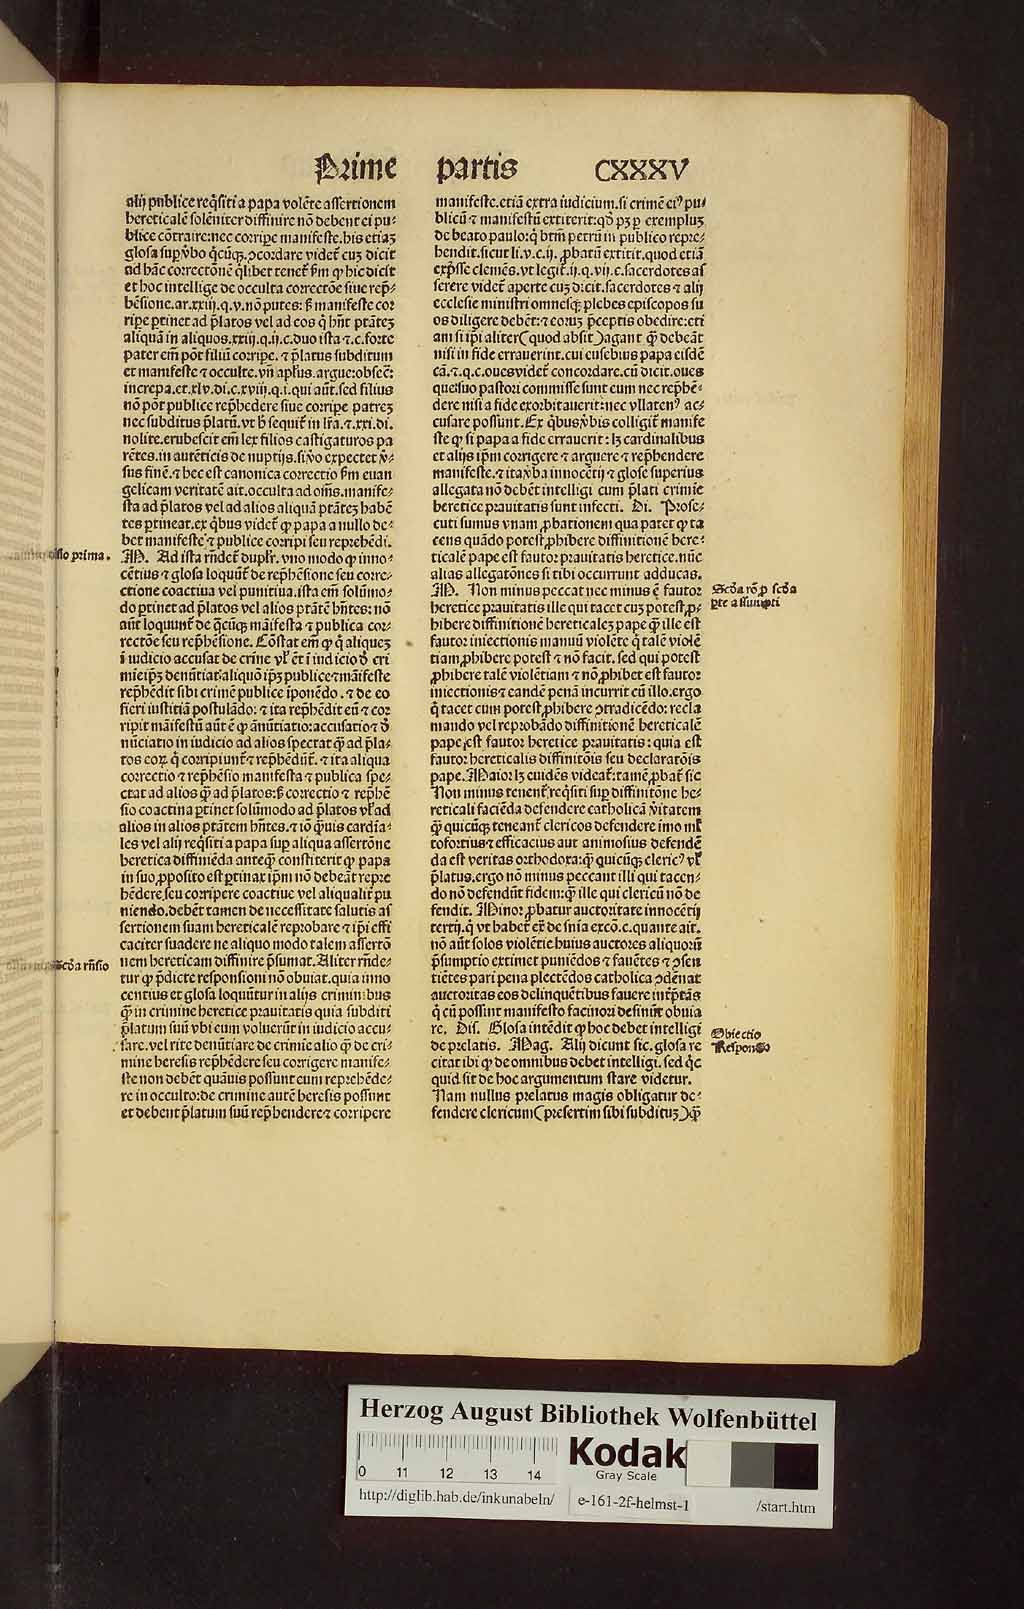 Prime partis CXXXV
alij publice reqͥsiti a papa volēte assertionem
hereticalē solēniter diffinire nō debent ei pu⸗
blice cōtraire: nec corripe manifeste. his etiaꝫ
glosa sup v̓bo qͥcūqꝫ. ꝯcordare videt᷑ cuꝫ dicit
ad hāc correctionē qͥlibet tenet᷑ ẜm ꝙ hic dicit
et hoc intellige de occulta correctōe siue rep̄⸗
hēsione. ar. xxiij. q. v. nō putes: ß manifeste cor
ripe ptinet ad p̄latos vel ad eos qͥ hn̄t ptātēꝫ
aliquā in aliquos. xxiij. q. ij. c. duo ista ⁊ .c. forte
pater em̄ pōt filiū corripe. ⁊ p̄latus subditum
et manifeste ⁊ occulte. vn̄ apl̓us. argue: obsec̄:
increpa. et. xlv. di. c. xviij. q. i. qui aūt. sed filius
nō pōt publice rep̄hēdere siue corripe patreꝫ
nec subditus p̄latū. vt h̄ sequit᷑ in lr̄a. ⁊. xxi. di.
nolite. erubescit em̄ lex filios castigaturos pa
rētes. in autēticis de nuptijs. si v̓o expectet v̓⸗
sus finē. ⁊ hec est canonica correctio ẜm euan
gelicam veritatē ait. occulta ad om̄s. manife⸗
sta ad p̄latos vel ad alios aliquā ptātēꝫ habē
tes ptineat. ex qͥbus videt᷑ ꝙ papa a nullo de⸗
bet manifeste ⁊ publice corripi seu reprehēdi.
M. Ad ista rn̄det᷑ duplr̄. vno modo ꝙ inno⸗
cētius ⁊ glosa loquūt᷑ de rep̄hēsione seu corre⸗
ctione coactiua vel punitiua. ista em̄ solūmo⸗
do ptinet ad p̄latos vel alios ptātē hn̄tes: nō
aūt loquunt᷑ de qͥcūqꝫ manifesta ⁊ publica cor⸗
rectōe seu rep̄hēsione. Cōstat em̄ ꝙ qͥ aliqueꝫ
ī iudicio accusat de crīne vl̓ ēt ī iudicio d̓ cri
mīe ip̄ꝫ denūtiat: aliquō ip̄ꝫ publice ⁊ manifeste
rep̄hēdit sibi crimē publice īponēdo. ⁊ de eo
fieri iustitiā postulādo: ⁊ ita rep̄hēdit eū ⁊ cor
ripit manifestū aūt ē ꝙ ānūtiatio: accusatio ⁊ d̓
nūciatio in iudicio ad alios spectat qͣ̄ ad p̄la⸗
tos eoꝝ qͥ corripiunt᷑ ⁊ rep̄hēdūt᷑. ⁊ ita aliqua
correctio ⁊ rep̄hēsio manifesta ⁊ publica spe⸗
ctat ad alios qͣ̄ ad p̄latos: ß correctio ⁊ rep̄hē
sio coactina ptinet solūmodo ad p̄latos vl̓ ad
alios in alios ptātem hn̄tes. ⁊ iō qͣ̄uis cardīa⸗
les vel alij reqͥsiti a papa sup aliqua assertōne
heretica diffiniēda anteqͣ̄ constiterit ꝙ papa
in suo ꝓposito est ptinax ip̄m nō debeāt repre
hēdere seu corripere coactiue vel aliqualit᷑ pu
niendo. debēt tamen de necessitate salutis as
sertionem suam hereticalē reprobare ⁊ ip̄i effi
caciter suadere ne aliquo modo talem assertō
nem hereticam diffinire p̄sumat. Aliter rn̄de⸗
tur ꝙ p̄dicte responsioni nō obuiat. quia inno
centius et glosa loquūtur in alijs criminibus
qͣ̄ in crimine heretice prauitatis quia subditi
p̄latum suū vbi eum voluerūt in iudicio accu⸗
sare. vel rite denūtiare de crimīe alio qͣ̄ de cri⸗
mine heresis rep̄hēdere seu corrigere manife⸗
ste non debēt quāuis possunt eum reprehēde⸗
re in occulto: de crimine autē heresis possunt
et debent p̄latum suū rep̄hendere ⁊ corripere
manifeste. etiā extra iudicium. si crimē eiꝰ pu⸗
blicū ⁊ manifestū extiterit: qd̓ pꝫ p exempluꝫ
de beato paulo: qͥ btm̄ petrū in publico repre⸗
hendit. sicut li. v. c. ij. ꝓbatū extitit. quod etiā
exp̄sse clemēs. vt legit᷑. ij. q. vij. c. sacerdotes as
serere videt᷑ aperte cuꝫ dicit. sacerdotes ⁊ alij
ecclesie ministri omnesqꝫ plebes episcopos su
os diligere debēt: ⁊ eoruꝫ p̄ceptis obedire: eti
am si ip̄i aliter (quod absit) agant qͣ̄ debeāt
nisi in fide errauerint. cui eusebius papa eisdē
cā. ⁊. q. c. oues videt᷑ concordare. cū dicit. oues
que suo pastori commisse sunt eum nec rep̄hē⸗
dere nisi a fide exorbitauerit: nec vllatenꝰ ac⸗
cusare possunt. Ex qͥbus v̓bis colligit᷑ manife
ste ꝙ si papa a fide errauerit: lꝫ cardinalibus
et alijs ip̄m corrigere ⁊ arguere ⁊ rep̄hendere
manifeste. ⁊ ita v̓ba innocētij ⁊ glose superius
allegata nō debēt intelligi cum p̄lati crimīe
heretice prauitatis sunt infecti. Di. Prose⸗
cuti sumus vnam ꝓbationem qua patet ꝙ ta
cens quādo potest ꝓhibere diffinitionē here⸗
ticalē pape est fautor prauitatis heretice. nūc
alias allegatōnes si tibi occurrunt adducas.
M. Non minus peccat nec minus ē fautor
heretice prauitatis ille qui tacet cuꝫ potest ꝓ⸗
hibere diffinitionē hereticaleꝫ pape qͣ̄ ille est
fautor iniectionis manuū violēte qͥ talē violē
tiam ꝓhibere potest ⁊ nō facit. sed qui potest
ꝓhibere talē violētiam ⁊ nō ꝓhibet est fautor
iniectionis ⁊ eandē penā incurrit cū illo. ergo
qͥ tacet cum potest ꝓhibere ꝯtradicēdo: recla
mando vel reprobādo diffinitionē hereticalē
pape est fautor heretice prauitatis: quia est
fautor hereticalis diffinitōis seu declaratōis
pape. Maior lꝫ euidēs videat᷑: tamē ꝓbat᷑ sic
Non minus tenent᷑ reqͥsiti sup diffinitōne he⸗
reticali faciēda defendere catholicā v̓itatem
qͣ̄ quicūqꝫ teneant᷑ clericos defendere imo ml̓
tofortius ⁊ efficacius aut animosius defendē
da est veritas orthodoxa: qͣ̄ quicūqꝫ clericꝰ vl̓
p̄latus. ergo nō minus peccant illi qui tacen⸗
do nō defendūt fidem: qͣ̄ ille qui clericū nō de
fendit. Minor ꝓbatur auctoritate innocētij
tertij. qͥ vt habet᷑ ex̄ de sn̄ia excō. c. quante ait.
nō aūt solos violētie huius auctores aliquorū
p̄sumptio extimet puniēdos ⁊ fauētes ⁊ ꝯsen
tiētes pari pena plectēdos catholica ꝯdēnat
auctoritas eos delinquētibus fauere int̓p̄tās
qͥ cū possint manifesto facinori desinūt obuia
re. Dis. Glosa intēdit ꝙ hoc debet intelligi
de prelatis. Mag. Alij dicunt sic. glosa re
citat ibi ꝙ de omnibus debet intelligi. sed qͥc
quid sit de hoc argumentum stare videtur.
Nam nullus prelatus magis obligatur de⸗
fendere clericum (presertim sibi subdituꝫ) qͣ̄
ssio prima.
Scd̓a rn̄sio
Scd̓a rō ꝓ scd̓a
pte assumpti
Obiectio
Responsio
Herzog August Bibliothek Wolfenbüttel
Kodak
Gray Scale
0 11 12 13 14
http://diglib.hab.de/inkunabeln/ e-161-2f-helmst-1 /start.htm